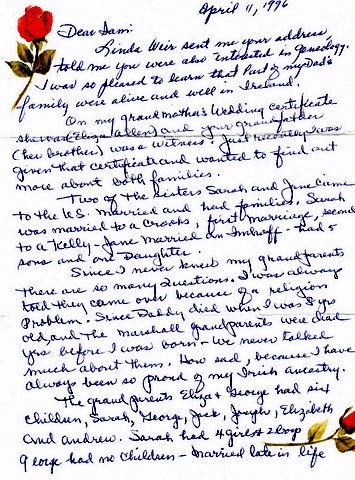 April 11, 1996
Dear Sam:
Linda Weir sent me your address,
told me you were also interested in Geneology.
I was so pleased to learn that Part of my Dad's
family were alive and well in Ireland.
On my grandmother's Wedding certificate
she was (Eliza Allen) and your grandfather
(her brother) was a witness. Just recently I was
given that certificate and wanted to find out
more about both families.
Two of the sisters Sarah and Jane came
to the U.S. Married and had families. Sarah
was married to a Crooks, first marriage, second
to a Kelly - Jane Married an Imhoff - had 5
sons and one Daughter.
Since I never knew my grandparents
there are so many Questions. I was always
told they came over because of a religion
Problem. Since Daddy died when I was 8 yrs
old, and the Marshall grandparents were dead
yrs before I was born - we never talked
much about them. How sad, because I have
always been so proud of my Irish ancestry.
The grandparents Eliza & George had six
Children, Sarah, George, Jack, Joseph, Elizabeth
and Andrew. Sarah had 4 girls & 2 boys
George had no Children - Married late in life